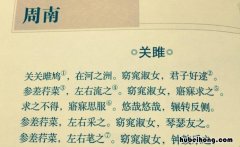 周南
关雎
关关雎鸠①，在河之洲。窈窕淑女，君子好逑②。
参差荇菜，左右流之③。窈窕淑女，寤寐求之。
求之不得，寤寐思服④。悠哉悠哉，辗转反侧。
参差荇菜，左右采之。窈窕淑女，琴瑟友之。
参差荇菜，左右芼之⑤。窈窕淑女，钟
hubeihong.com